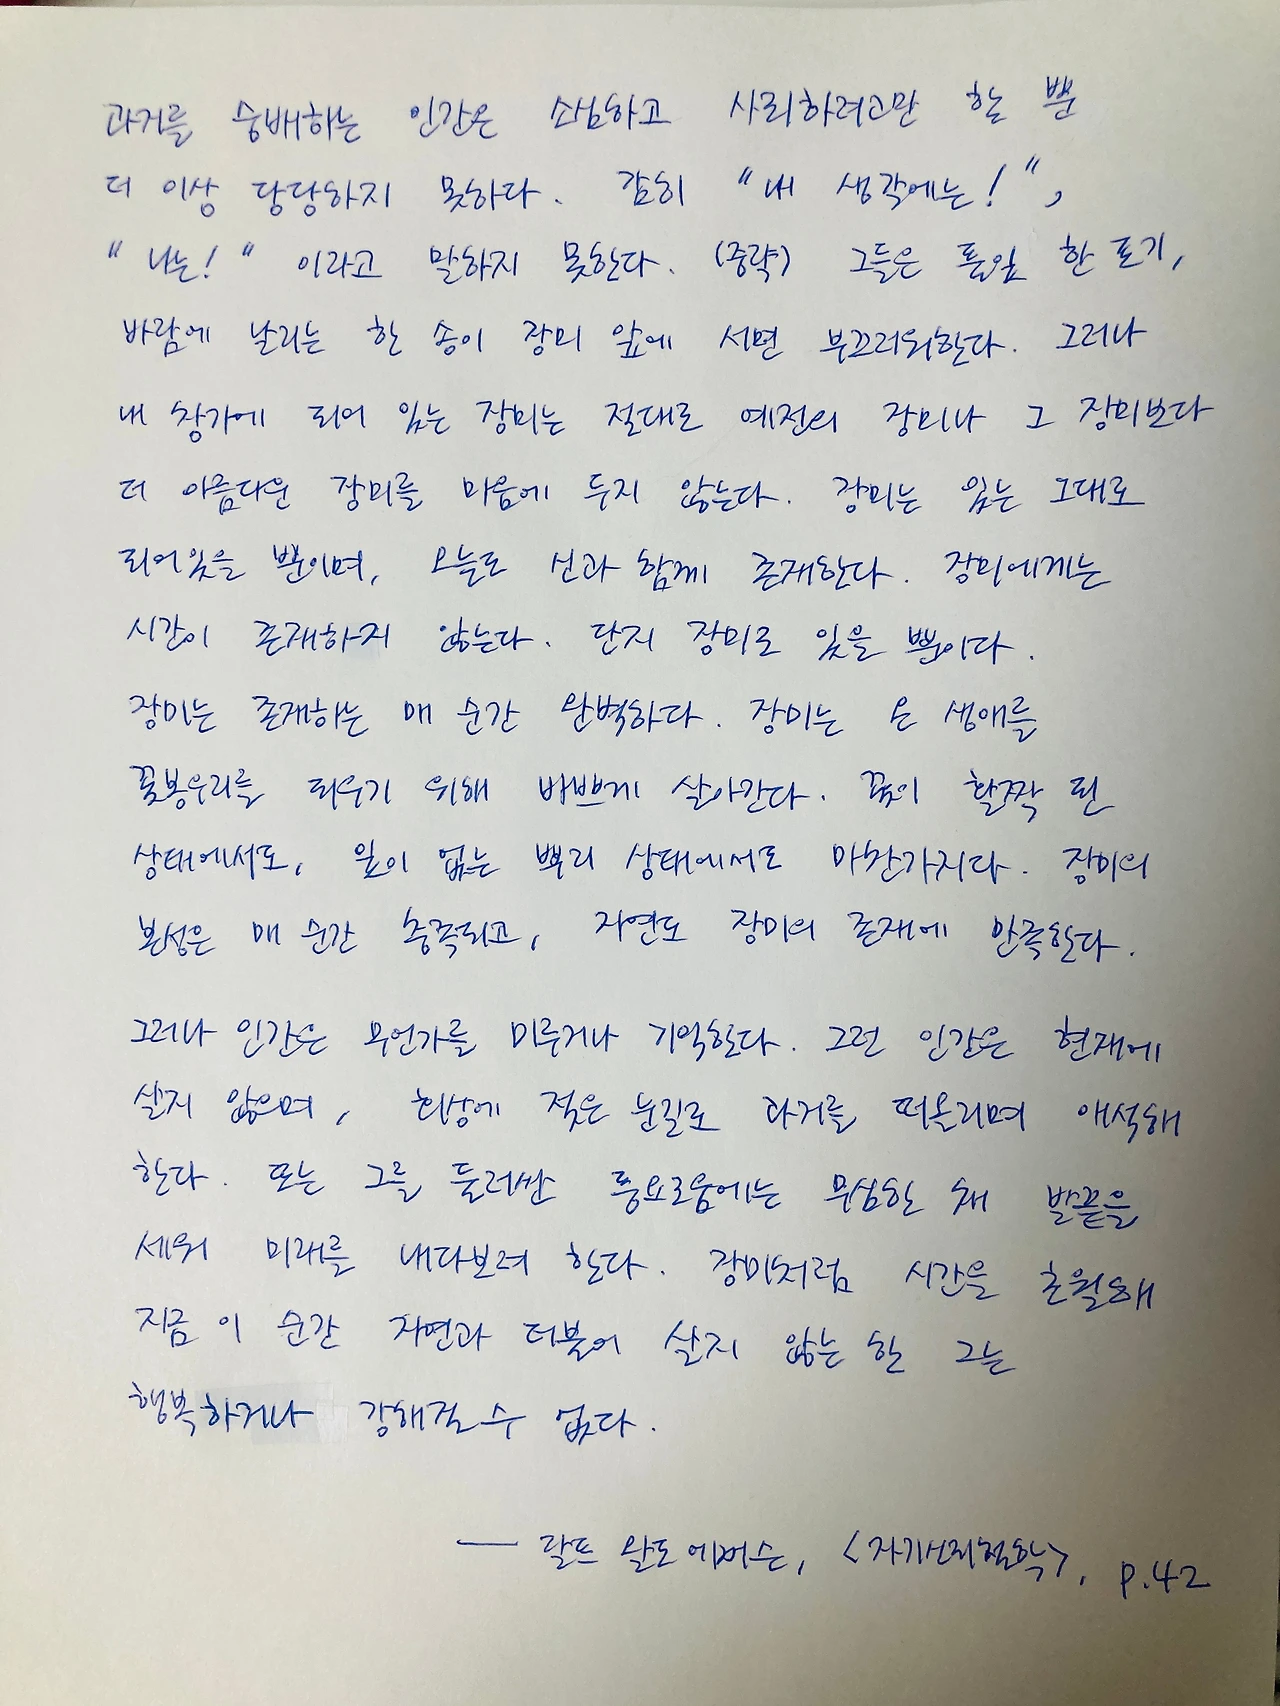 과거를 숭배하는 인간은 소심하고 사리하려고만 할 뿐
더 이상 당당하지 못하다. 감히 "내 생각에는!",
"나는!" 이라고 말하지 못한다. (중략) 그들은 풀잎 한 포기,
바람에 날리는 한 송이 장미 앞에 서면 부끄러워한다. 그러나
내 창가에 피어 있는 장미는 절대로 예전의 장미나 그 장미보다
더 아름다운 장미를 마음에 두지 않는다. 장미는 있는 그대로
피어있을 뿐이며, 오늘도 신과 함께 존재한다. 장미에게는
시간이 존재하지 않는다. 단지 장미로 있을 뿐이다.
장미는 존재하는 매 순간 완벽하다. 장미는 온 생애를
꽃봉우리를 피우기 위해 바쁘게 살아간다. 꽃이 활짝 핀
상태에서도, 잎이 없는 뿌리 상태에서도 마찬가지다. 장미의
본성은 매 순간 충족되고, 자연도 장미의 존재에 만족한다.
그러나 인간은 무언가를 미루거나 기억한다. 그런 인간은 현재에
살지 않으며, 회상에 젖은 눈길로 과거를 떠올리며 애석해
한다. 또는 그를 둘러싼 풍요로움에는 무심한 채 발끝을
세워 미래를 내다보려 한다. 장미처럼 시간을 초월해
지금 이 순간 자연과 더불어 살지 않는 한 그는
행복하거나 강해질 수 없다.
— 랄프 왈도 에머슨, <자기신뢰철학>, p.42